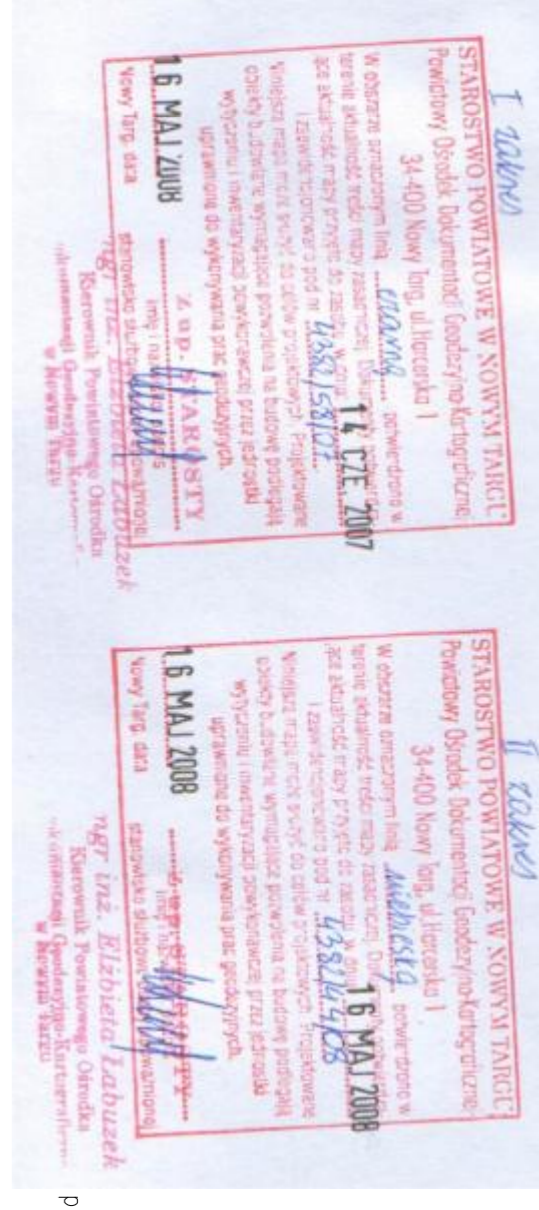 I zakres
STAROSTWO POWIATOWE W NOWYM TARGU
Powiatowy Ośrodek Dokumentacji Geodezyjno-Kartograficznej
34-400 Nowy Targ, ul. Harcerska 1
W obszarze oznaczonym linią czarną potwierdzono w
terenie aktualność treści mapy zasadniczej.
ące aktualność mapy przyjęto do zasobu w dniu 14 CZE. 2007
i zaewidencjonowano pod nr 4382/53/07
Niniejsza mapa może służyć do celów projektowych. Projektowane
obiekty budowlane wymagające pozwolenia na budowę podlegają
wytyczeniu i inwentaryzacji powykonawczej przez jednostki
uprawnione do wykonywania prac geodezyjnych.
16 MAJ 2008
Z up. STAROSTY
Nowy Targ, data
imię i
stanowisko
mgr inż. Elżbieta Łabuzek
Kierownik Powiatowego Ośrodka
Dokumentacji Geodezyjno-
w Nowym Targu
II zakres
STAROSTWO POWIATOWE W NOWYM TARGU
Powiatowy Ośrodek Dokumentacji Geodezyjno-Kartograficznej
34-400 Nowy Targ, ul. Harcerska 1
W obszarze oznaczonym linią niebieską potwierdzono w
terenie aktualność treści mapy zasadniczej.
ące aktualność mapy przyjęto do zasobu w dniu 16 MAJ 2008
i zaewidencjonowano pod nr 4382/44/08
Niniejsza mapa może służyć do celów projektowych. Projektowane
obiekty budowlane wymagające pozwolenia na budowę podlegają
wytyczeniu i inwentaryzacji powykonawczej przez jednostki
uprawnione do wykonywania prac geodezyjnych.
16 MAJ 2008
Nowy Targ, data
imię i
stanowisko służbowe
mgr inż. Elżbieta Łabuzek
Kierownik Powiatowego Ośrodka
Dokumentacji Geodezyjno-Kartograficznej
w Nowym Targu
p